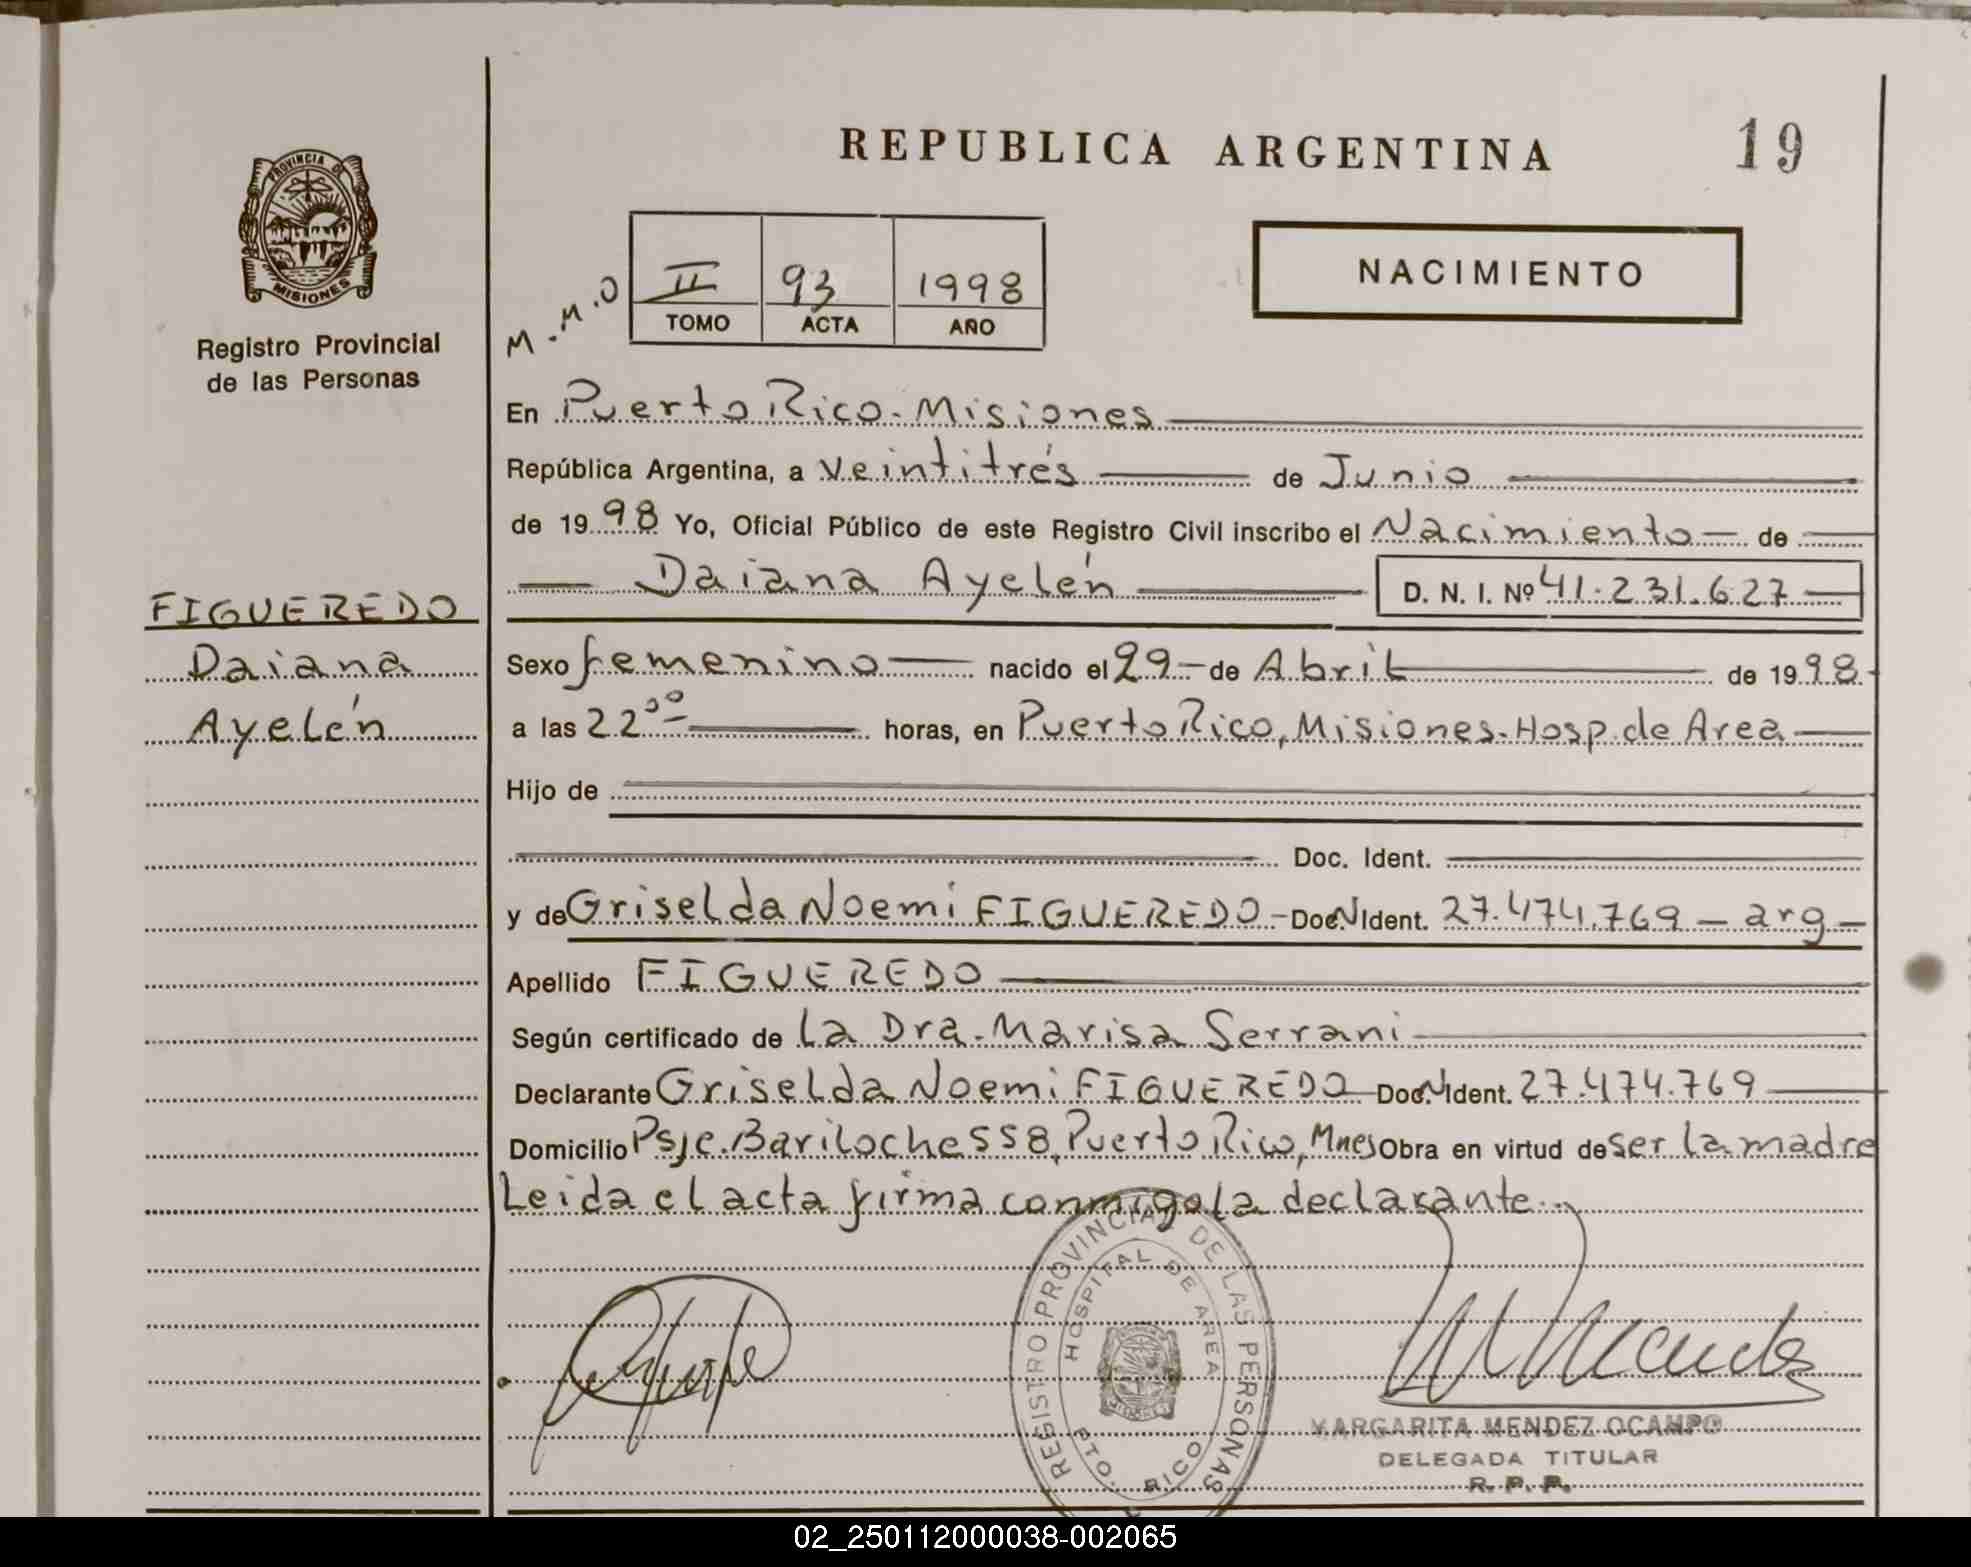 REPUBLICA ARGENTINA
19
PROVINCIA DE
MISIONES
Registro Provincial
de las Personas
M.M.O
II 93 1998
TOMO ACTA AÑO
NACIMIENTO
En Puerto Rico-Misiones
República Argentina, a Veintitrés de Junio
de 1998 Yo, Oficial Público de este Registro Civil inscribo el Nacimiento de
Daiana Ayelén D. N. I. Nº 41.231.627
FIGUEREDO
Daiana
Ayelén
Sexo femenino nacido el 29 de Abril de 1998
a las 22 00 horas, en Puerto Rico, Misiones-Hosp. de Area
Hijo de
Doc. Ident.
y de Griselda Noemi FIGUEREDO - Doc. N Ident. 27.474.769 - arg -
Apellido FIGUEREDO
Según certificado de la Dra. Marisa Serrani
Declarante Griselda Noemi FIGUEREDO Doc. N Ident. 27.474.769
Domicilio Psje. Bariloche 558, Puerto Rico, Mnes Obra en virtud de ser la madre
Leida el acta firma conmigo la declarante..
REGISTRO PROVINCIAL DE LAS PERSONAS
HOSPITAL DE AREA
PTO. RICO
MARGARITA MENDEZ OCAMPO
DELEGADA TITULAR
R. P. P.
02_250112000038-002065